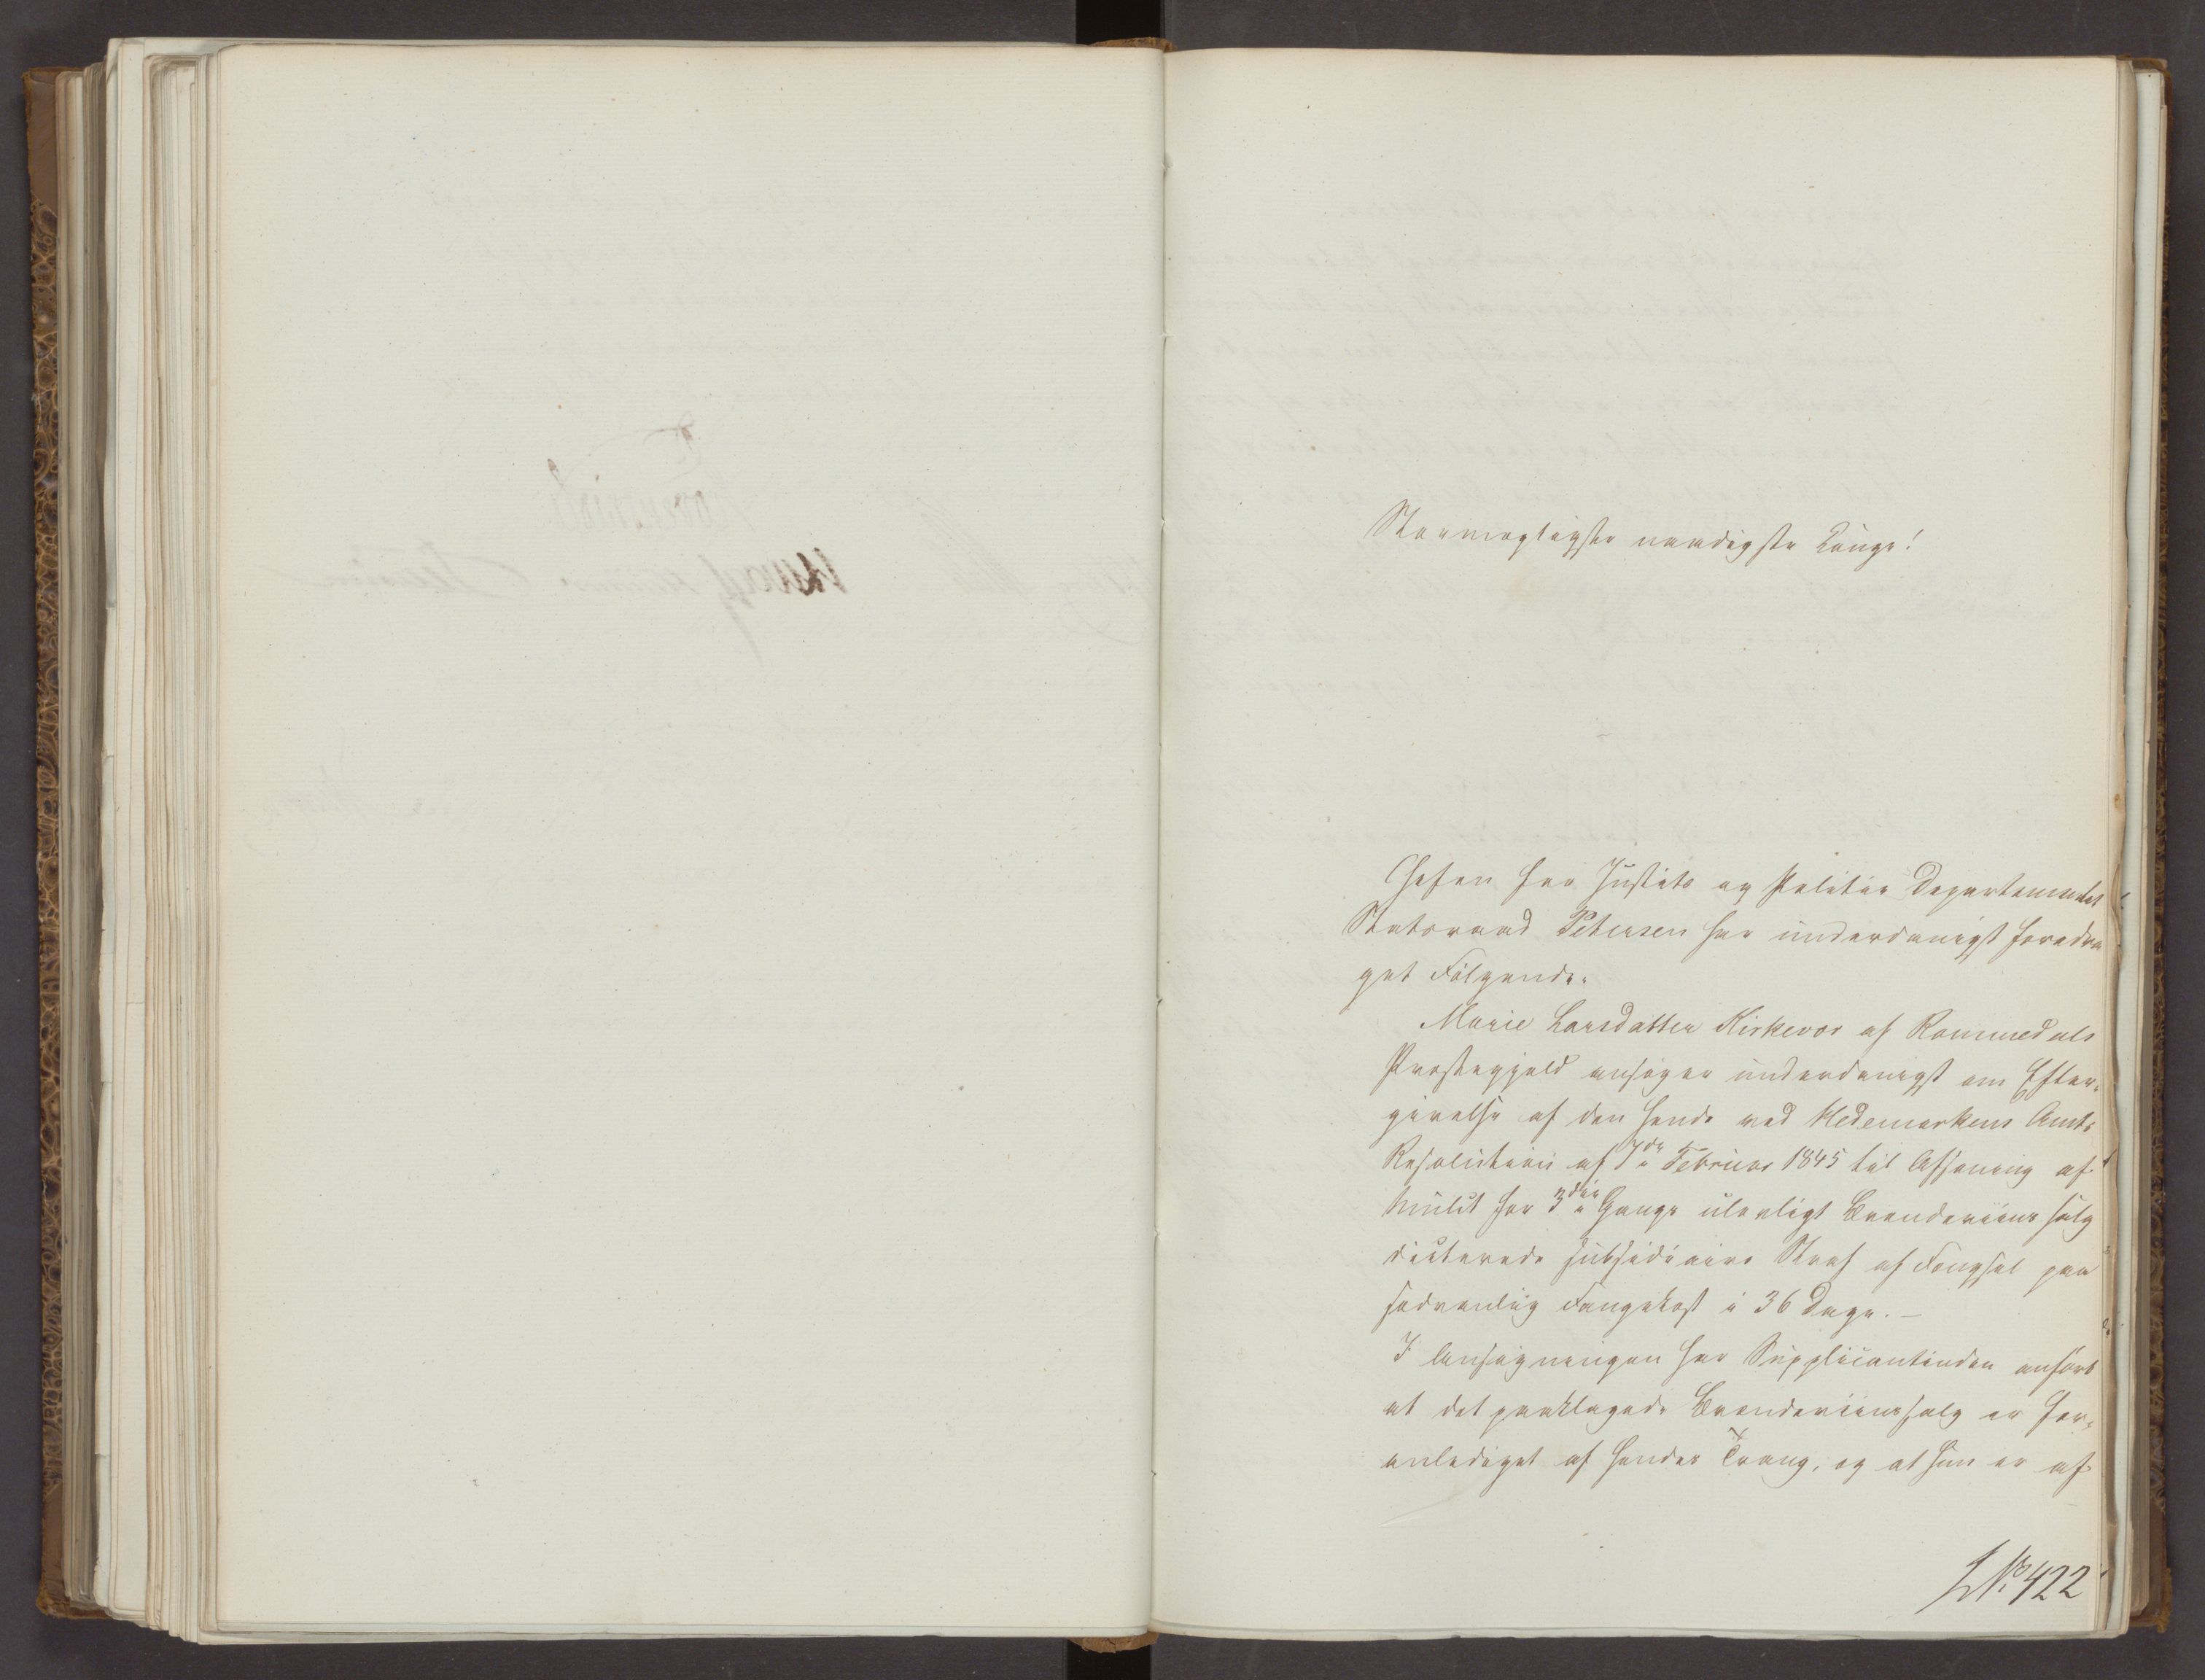 Stormægtigste naadigste Konge!
Chefen for Justits og Politie Departementet
Statsraad Petersen har underdanigst foredra
get Følgende:
Marie Larsdatter Kirkevor af Rommedals
Præstegjeld ansøger underdanigst om Efter-
givelse af den hende ved Hedemarkens Amts
Resolution af 7de Februar 1845 til Afsoning af
Mulct for 3die Gang ulovligt Brændeviins salg
dicterede subsidiaire Straf af Fængsel paa
sædvanlig Fangekost i 36 Dage. –
I Ansøgningen har Supplicantinden anført
at det paaklagede Brændeviinssalg er for-
anlediget af hendes Trang, og at hun er af
No. 422